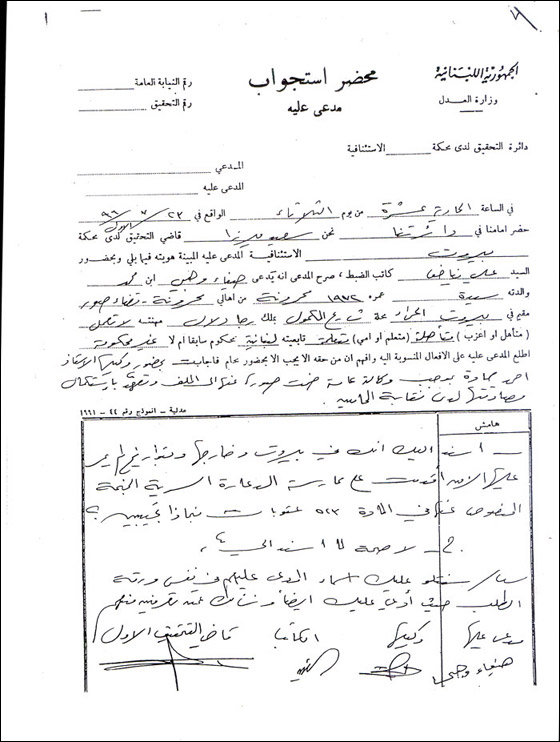 الجمهورية اللبنانية
وزارة العدل
محضر استجواب
مدعى عليه
رقم النيابة العامة
رقم التحقيق
دائرة التحقيق لدى محكمة الاستئنافية
المدعي
المدعى عليه
في الساعة الحادية عشرة من يوم الثلاثاء الواقع في ٢٣
حضر امامنا في دائرتنا نحن سعيد ميرزا قاضي التحقيق لدى محكمة
بيروت الاستئنافية المدعى عليه المبينة هويته فيما يلي وبحضور
السيد علي كاتب الضبط، صرح المدعى انه يدعى هيفاء وهبي ابن محمد
والدته سيدة عمره ١٩٧٢ محرونة من اهالي محرونة - قضاء صور
مقيم في بيروت شارع الكحول ملك رجا دلال مهنته لا تعمل
(متأهل او اعزب) متأهلة (متعلم او امي) متعلمة تابعيته لبنانية محكوم سابقا ام لا غير محكومة
اطلع المدعى عليه على الافعال المنسوبة اليه وافهم ان من حقه الا يجيب الا بحضور محام فاجابت بحضور وكيلها الاستاذ
احمد بموجب وكالة عامة ضمت صورة عنها الى الملف وتعهد باستكمال
لدى نقابة المحامين
عدلية - انموذج رقم ٤٤ - ١٦٦١
هامش
اسند اليك انك في بيروت وخارجها وبتواريخ لم يمر
عليها الزمن أقدمت على ممارسة الدعارة السرية
المنصوص عنها في المادة ٥٢٣ عقوبات فبماذا تجيبين؟
ج - لا صحة لما اسند الي
س/ سنتلو عليك اسماء المدعى عليهم في نفس ورقة
الطلب حيث أدعي عليك ايضاً ونسألك عمن تعرفينه منهم
مدعى عليها وكيلها الكاتب قاضي التحقيق الاول
هيفاء وهبي